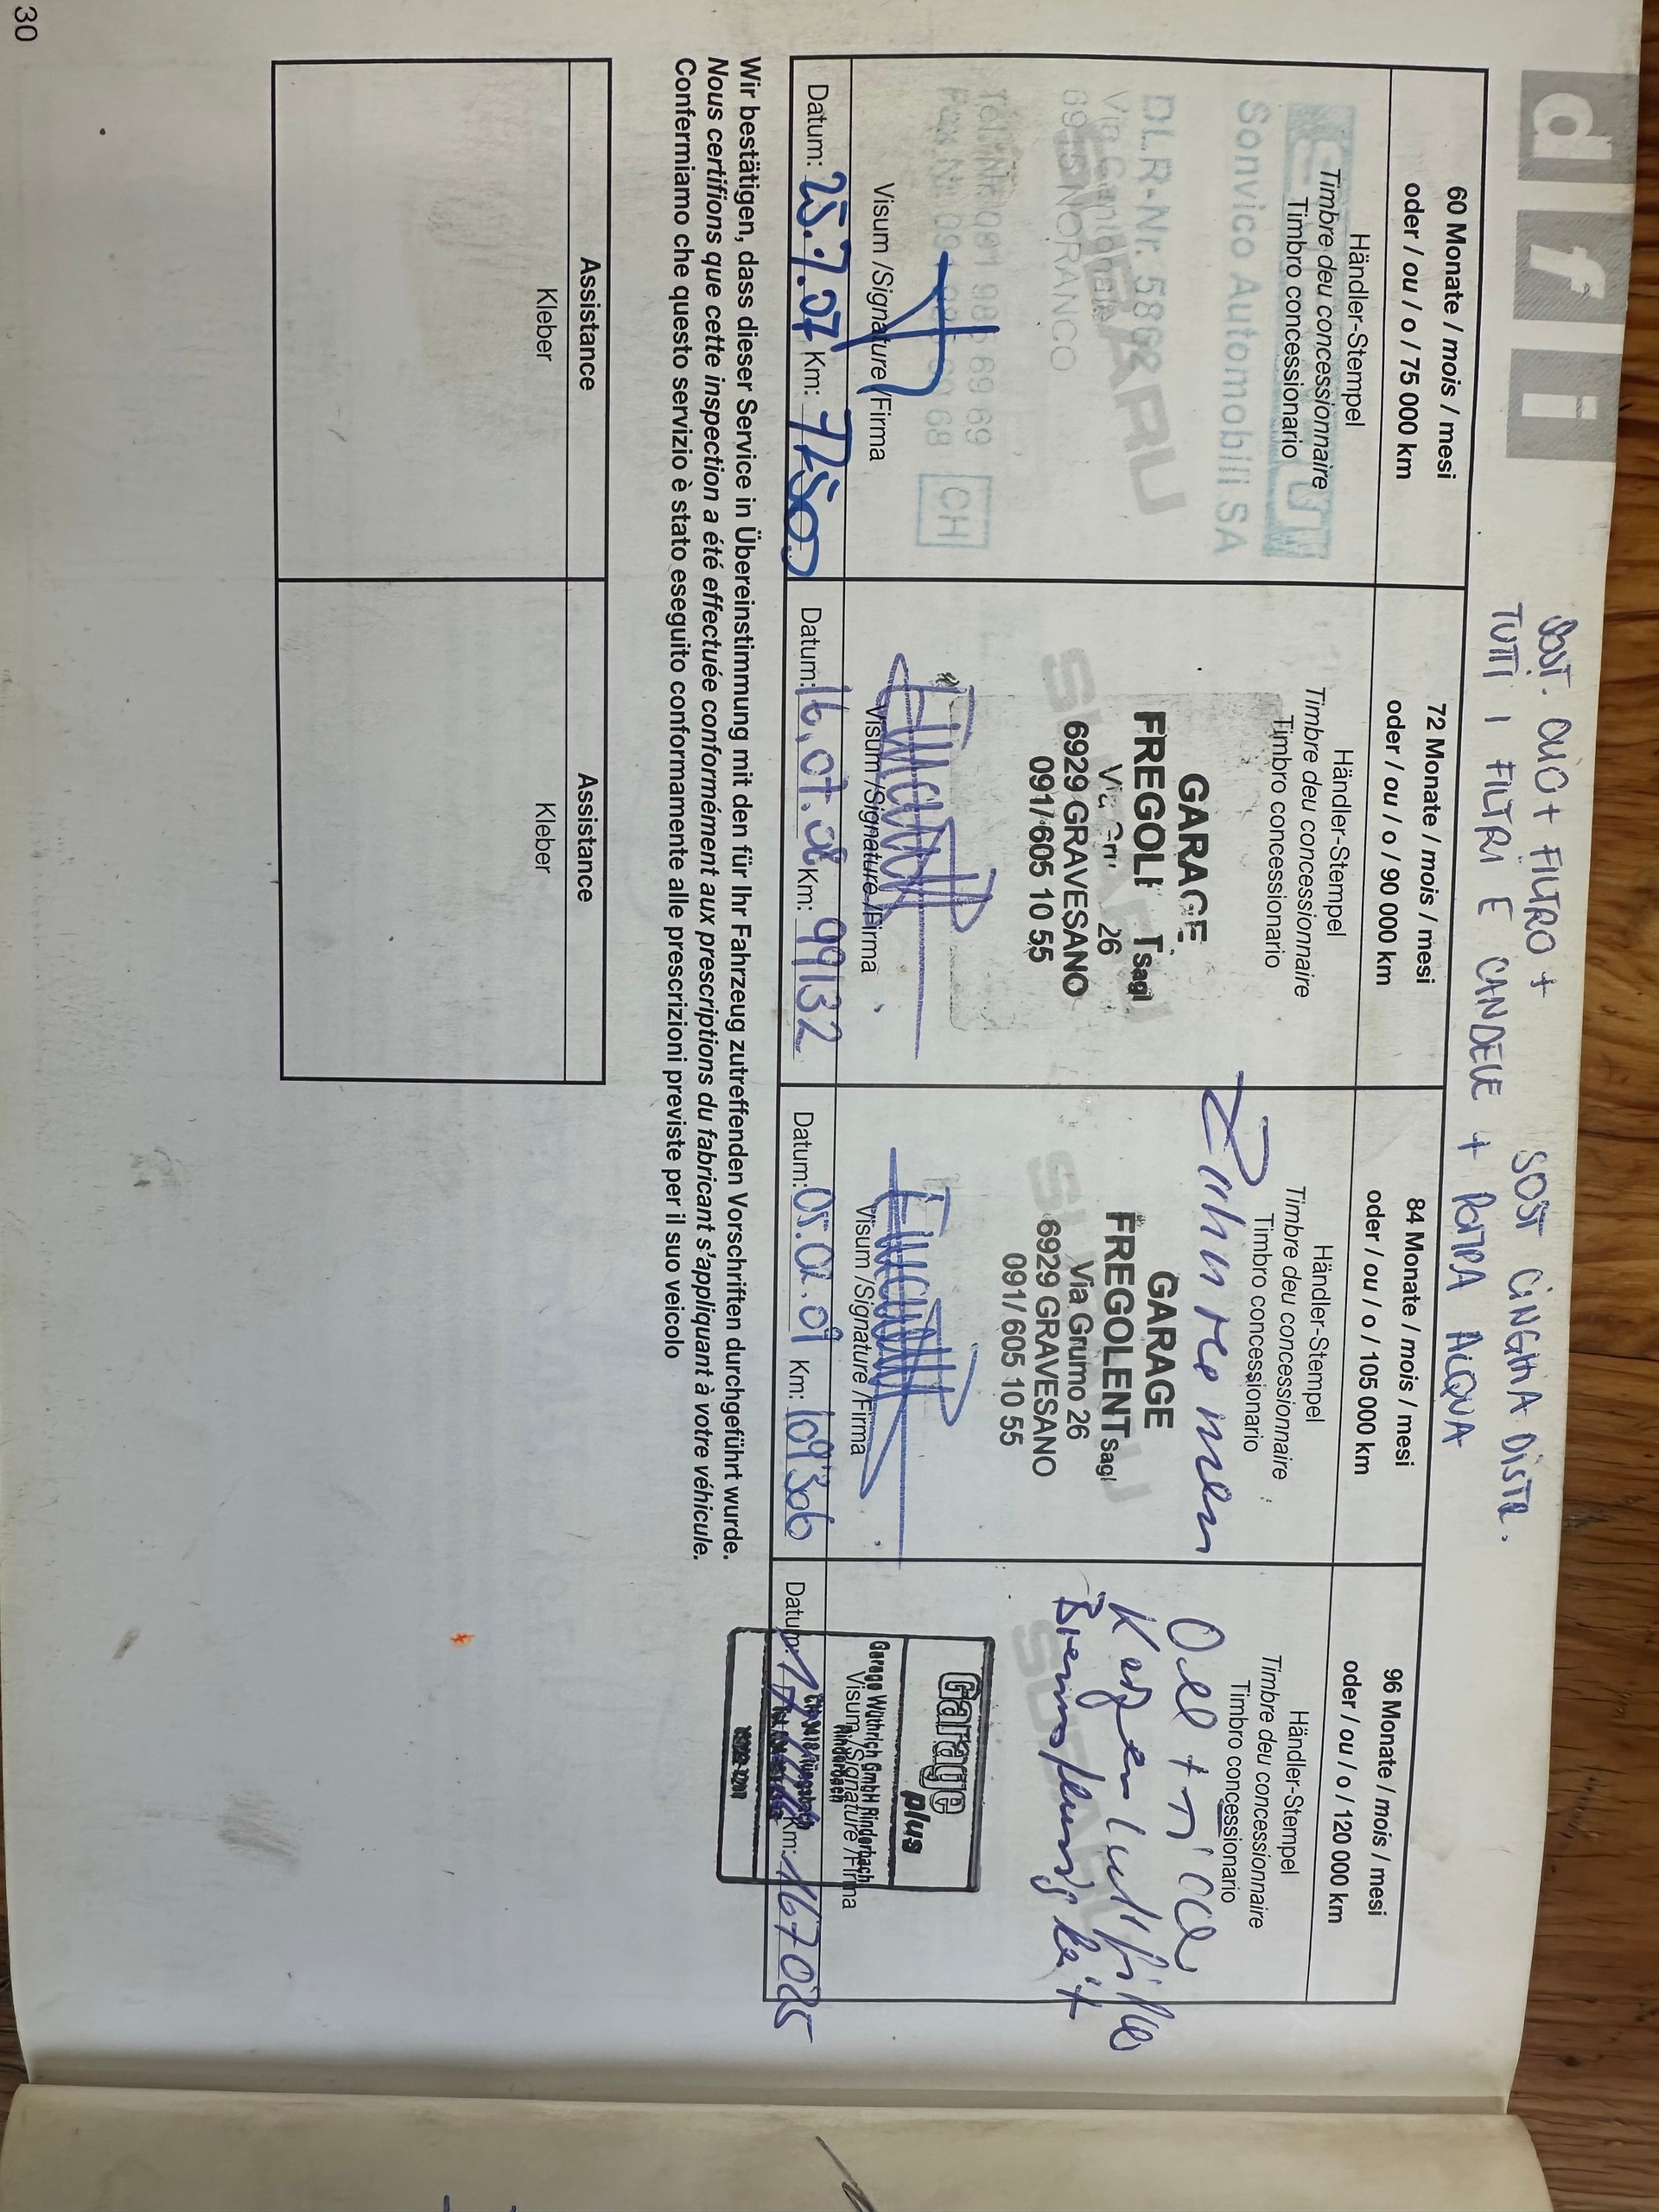 d f i
SOST. OLIO + FILTRO +
TUTTI I FILTRI E CANDELE + POMPA ACQUA
SOST CINGHIA DISTR.
60 Monate / mois / mesi
oder / ou / o / 75 000 km
Händler-Stempel
Timbre deu concessionnaire
Timbro concessionario
Sonvico Automobili SA
DLR-Nr. 5862
CH
SUBARU
Visum /Signature /Firma
Datum: 25.7.07 Km: 77500
72 Monate / mois / mesi
oder / ou / o / 90 000 km
Händler-Stempel
Timbre deu concessionnaire
Timbro concessionario
GARAGE
26
6929 GRAVESANO
091/605 10 55
Visum /Signature /Firma
Datum: 16.07.08 Km: 99132
84 Monate / mois / mesi
oder / ou / o / 105 000 km
Händler-Stempel
Timbre deu concessionnaire
Timbro concessionario
Zahnriemen
GARAGE
FREGOLENT sagl
Via Grumo 26
6929 GRAVESANO
091/605 10 55
Visum /Signature /Firma
Datum: 05.02.09 Km: 109306
96 Monate / mois / mesi
oder / ou / o / 120 000 km
Händler-Stempel
Timbre deu concessionnaire
Timbro concessionario
Oel + Filter
Kerzen Luftfilter
Bremsflüssigkeit
Garage plus
Garage Wüthrich GmbH Rinderbach
Rinderbach
Visum /Signature /Firma
Datum: Km: 167025
Wir bestätigen, dass dieser Service in Übereinstimmung mit den für Ihr Fahrzeug zutreffenden Vorschriften durchgeführt wurde.
Nous certifions que cette inspection a été effectuée conformément aux prescriptions du fabricant s'appliquant à votre véhicule.
Confermiamo che questo servizio è stato eseguito conformamente alle prescrizioni previste per il suo veicolo
Assistance
Kleber
Assistance
Kleber
30